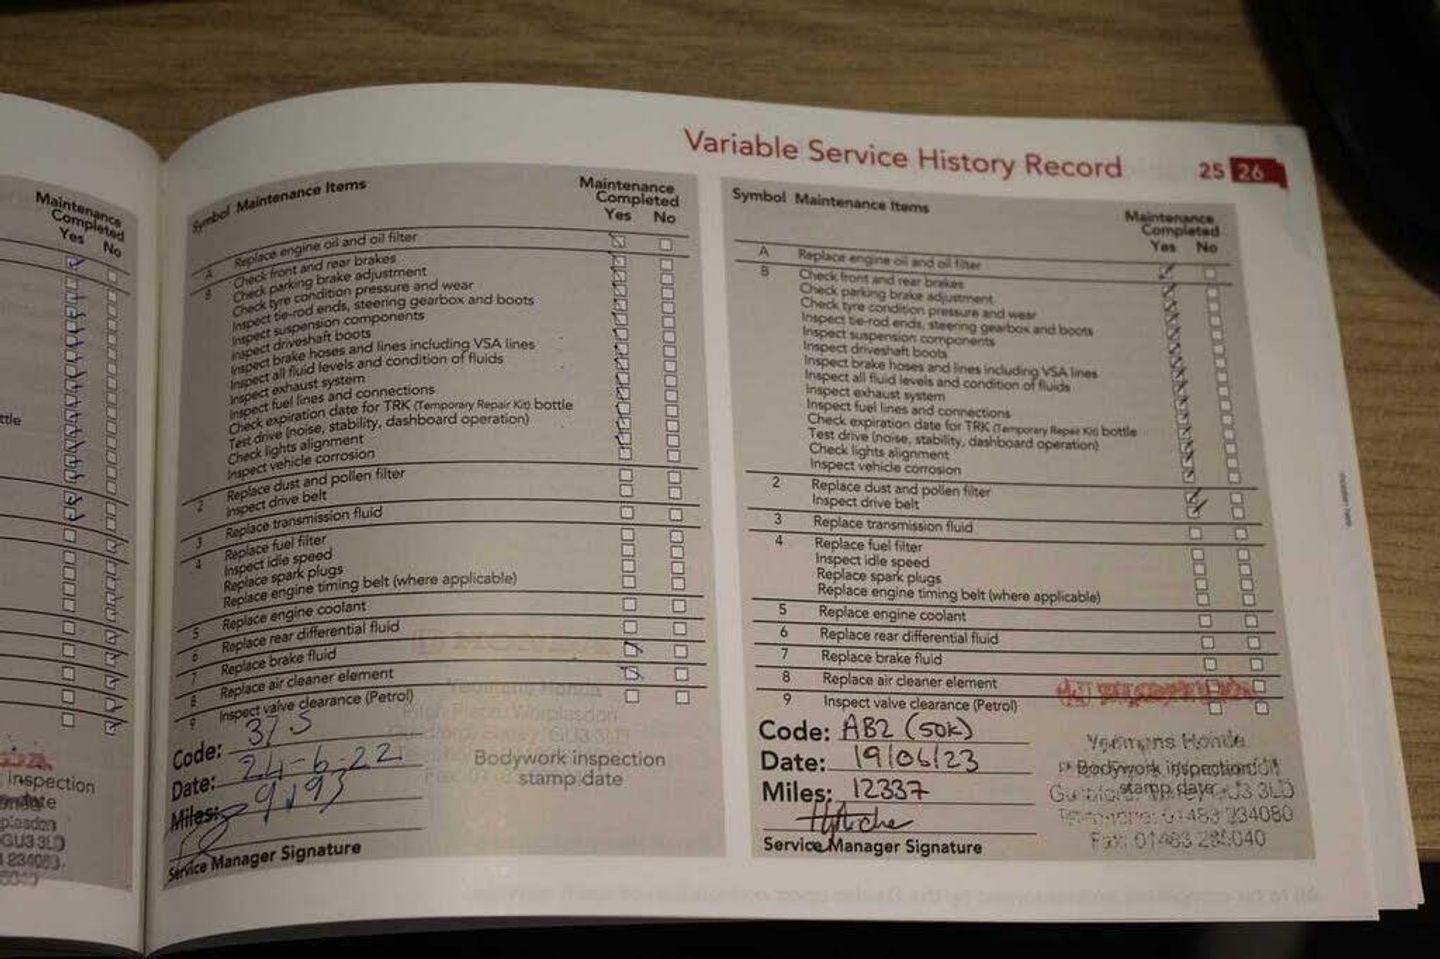 Variable Service History Record 25 26
Maintenance
Completed
Yes No
ttle
inspection
GU3 3LD
Symbol Maintenance Items Maintenance
Completed
Yes No
A Replace engine oil and oil filter
B Check front and rear brakes
Check parking brake adjustment
Check tyre condition pressure and wear
Inspect tie-rod ends, steering gearbox and boots
Inspect suspension components
Inspect driveshaft boots
Inspect brake hoses and lines including VSA lines
Inspect all fluid levels and condition of fluids
Inspect exhaust system
Inspect fuel lines and connections
Check expiration date for TRK (Temporary Repair Kit) bottle
Test drive (noise, stability, dashboard operation)
Check lights alignment
Inspect vehicle corrosion
2 Replace dust and pollen filter
Inspect drive belt
3 Replace transmission fluid
4 Replace fuel filter
Inspect idle speed
Replace spark plugs
Replace engine timing belt (where applicable)
5 Replace engine coolant
6 Replace rear differential fluid
7 Replace brake fluid
8 Replace air cleaner element
9 Inspect valve clearance (Petrol)
Code:
Date: 24-6-22
Miles: 9193
Service Manager Signature
Bodywork inspection
stamp date
Symbol Maintenance Items Maintenance
Completed
Yes No
A Replace engine oil and oil filter
B Check front and rear brakes
Check parking brake adjustment
Check tyre condition pressure and wear
Inspect tie-rod ends, steering gearbox and boots
Inspect suspension components
Inspect driveshaft boots
Inspect brake hoses and lines including VSA lines
Inspect all fluid levels and condition of fluids
Inspect exhaust system
Inspect fuel lines and connections
Check expiration date for TRK (Temporary Repair Kit) bottle
Test drive (noise, stability, dashboard operation)
Check lights alignment
Inspect vehicle corrosion
2 Replace dust and pollen filter
Inspect drive belt
3 Replace transmission fluid
4 Replace fuel filter
Inspect idle speed
Replace spark plugs
Replace engine timing belt (where applicable)
5 Replace engine coolant
6 Replace rear differential fluid
7 Replace brake fluid
8 Replace air cleaner element
9 Inspect valve clearance (Petrol)
Code: AB2 (50k)
Date: 19/06/23
Miles: 12337
Service Manager Signature
Yeomans Honda
Bodywork inspection
stamp date
GU3 3LD
01483 234080
Fax: 01483 285040